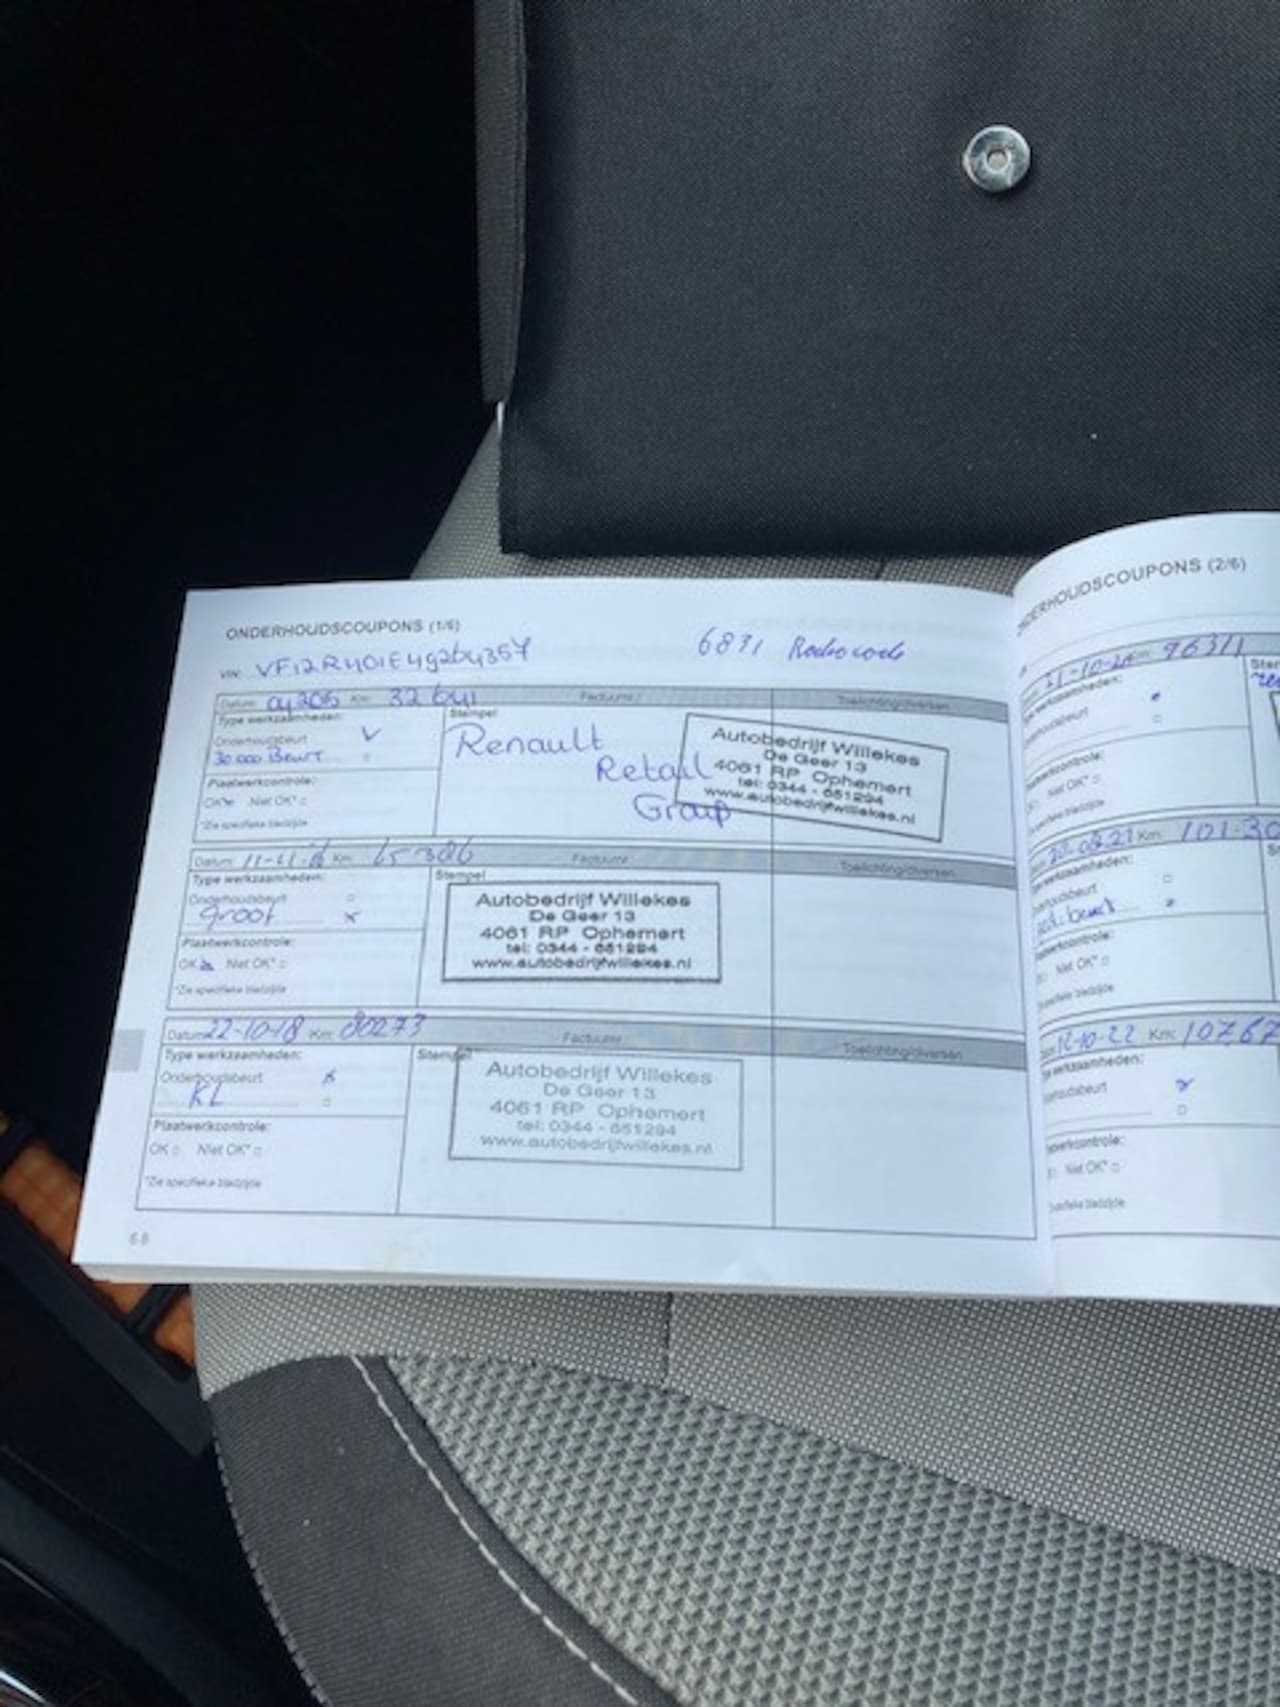 ONDERHOUDSCOUPONS (1/6)
VIN: VF12R401E49264357
6831 Radiocode
Datum: Km: 32 Factuurnr.: Toelichting/diversen
Type werkzaamheden: Stempel
Onderhoudsbeurt V
30.000 Beurt
Renault
Retail
Group
Autobedrijf Willekes
De Geer 13
4061 RP Ophemert
tel: 0344 - 651294
www.autobedrijfwillekes.nl
Plaatwerkcontrole:
OK Niet OK*
*Zie specifieke bladzijde
Datum: 11-11-16 Km: 65386 Factuurnr.: Toelichting/diversen
Type werkzaamheden: Stempel
Onderhoudsbeurt
groot x
Autobedrijf Willekes
De Geer 13
4061 RP Ophemert
tel: 0344 - 651294
www.autobedrijfwillekes.nl
Plaatwerkcontrole:
OK Niet OK*
*Zie specifieke bladzijde
Datum: 22-10-18 Km: 80273 Factuurnr.: Toelichting/diversen
Type werkzaamheden: Stempel
Onderhoudsbeurt x
KL
Autobedrijf Willekes
De Geer 13
4061 RP Ophemert
tel: 0344 - 651294
www.autobedrijfwillekes.nl
Plaatwerkcontrole:
OK Niet OK*
*Zie specifieke bladzijde
6.8
ONDERHOUDSCOUPONS (2/6)
Km: 96311
Type werkzaamheden:
Niet OK*
Km: 101.30
werkzaamheden:
beurt
Niet OK*
12-10-22 Km: 107.67
werkzaamheden:
Niet OK*